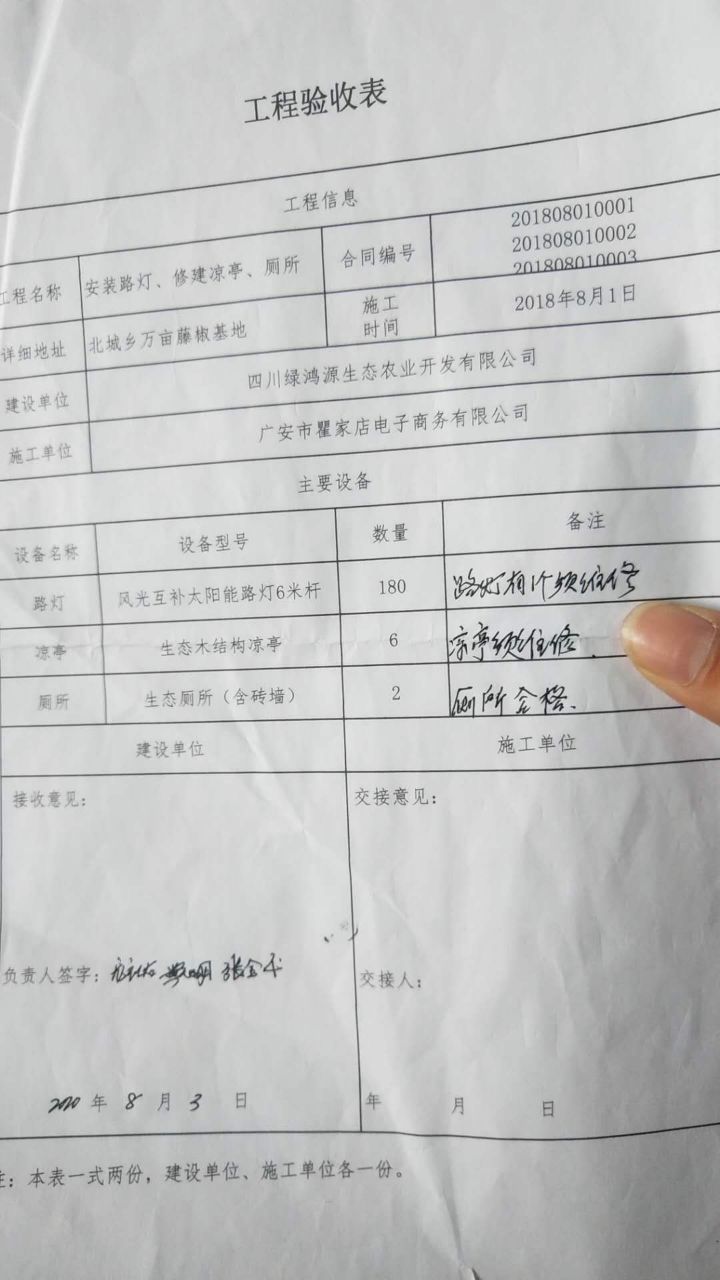 工程验收表
工程信息
工程名称 安装路灯、修建凉亭、厕所 合同编号 201808010001
201808010002
201808010003
详细地址 北城乡万亩藤椒基地 施工
时间 2018年8月1日
建设单位 四川绿鸿源生态农业开发有限公司
施工单位 广安市瞿家店电子商务有限公司
主要设备
设备名称 设备型号 数量 备注
路灯 风光互补太阳能路灯6米杆 180 路灯有个须维修
凉亭 生态木结构凉亭 6 凉亭须维修.
厕所 生态厕所（含砖墙） 2 厕所合格.
建设单位 施工单位
接收意见： 交接意见：
负责人签字： 张全 交接人：
2020 年 8 月 3 日 年 月 日
注：本表一式两份，建设单位、施工单位各一份。